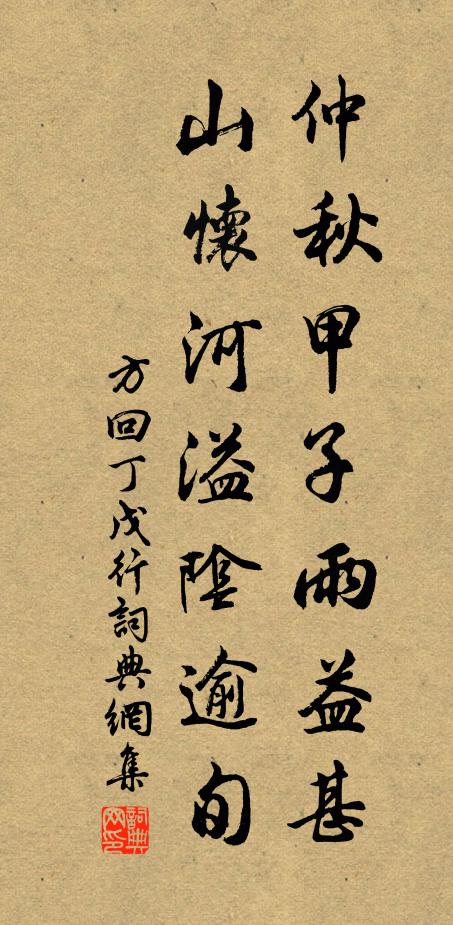 仲秋甲子雨益甚
山懷河溢陰逾旬
方回丁戊行詞典網集
詞典
网印